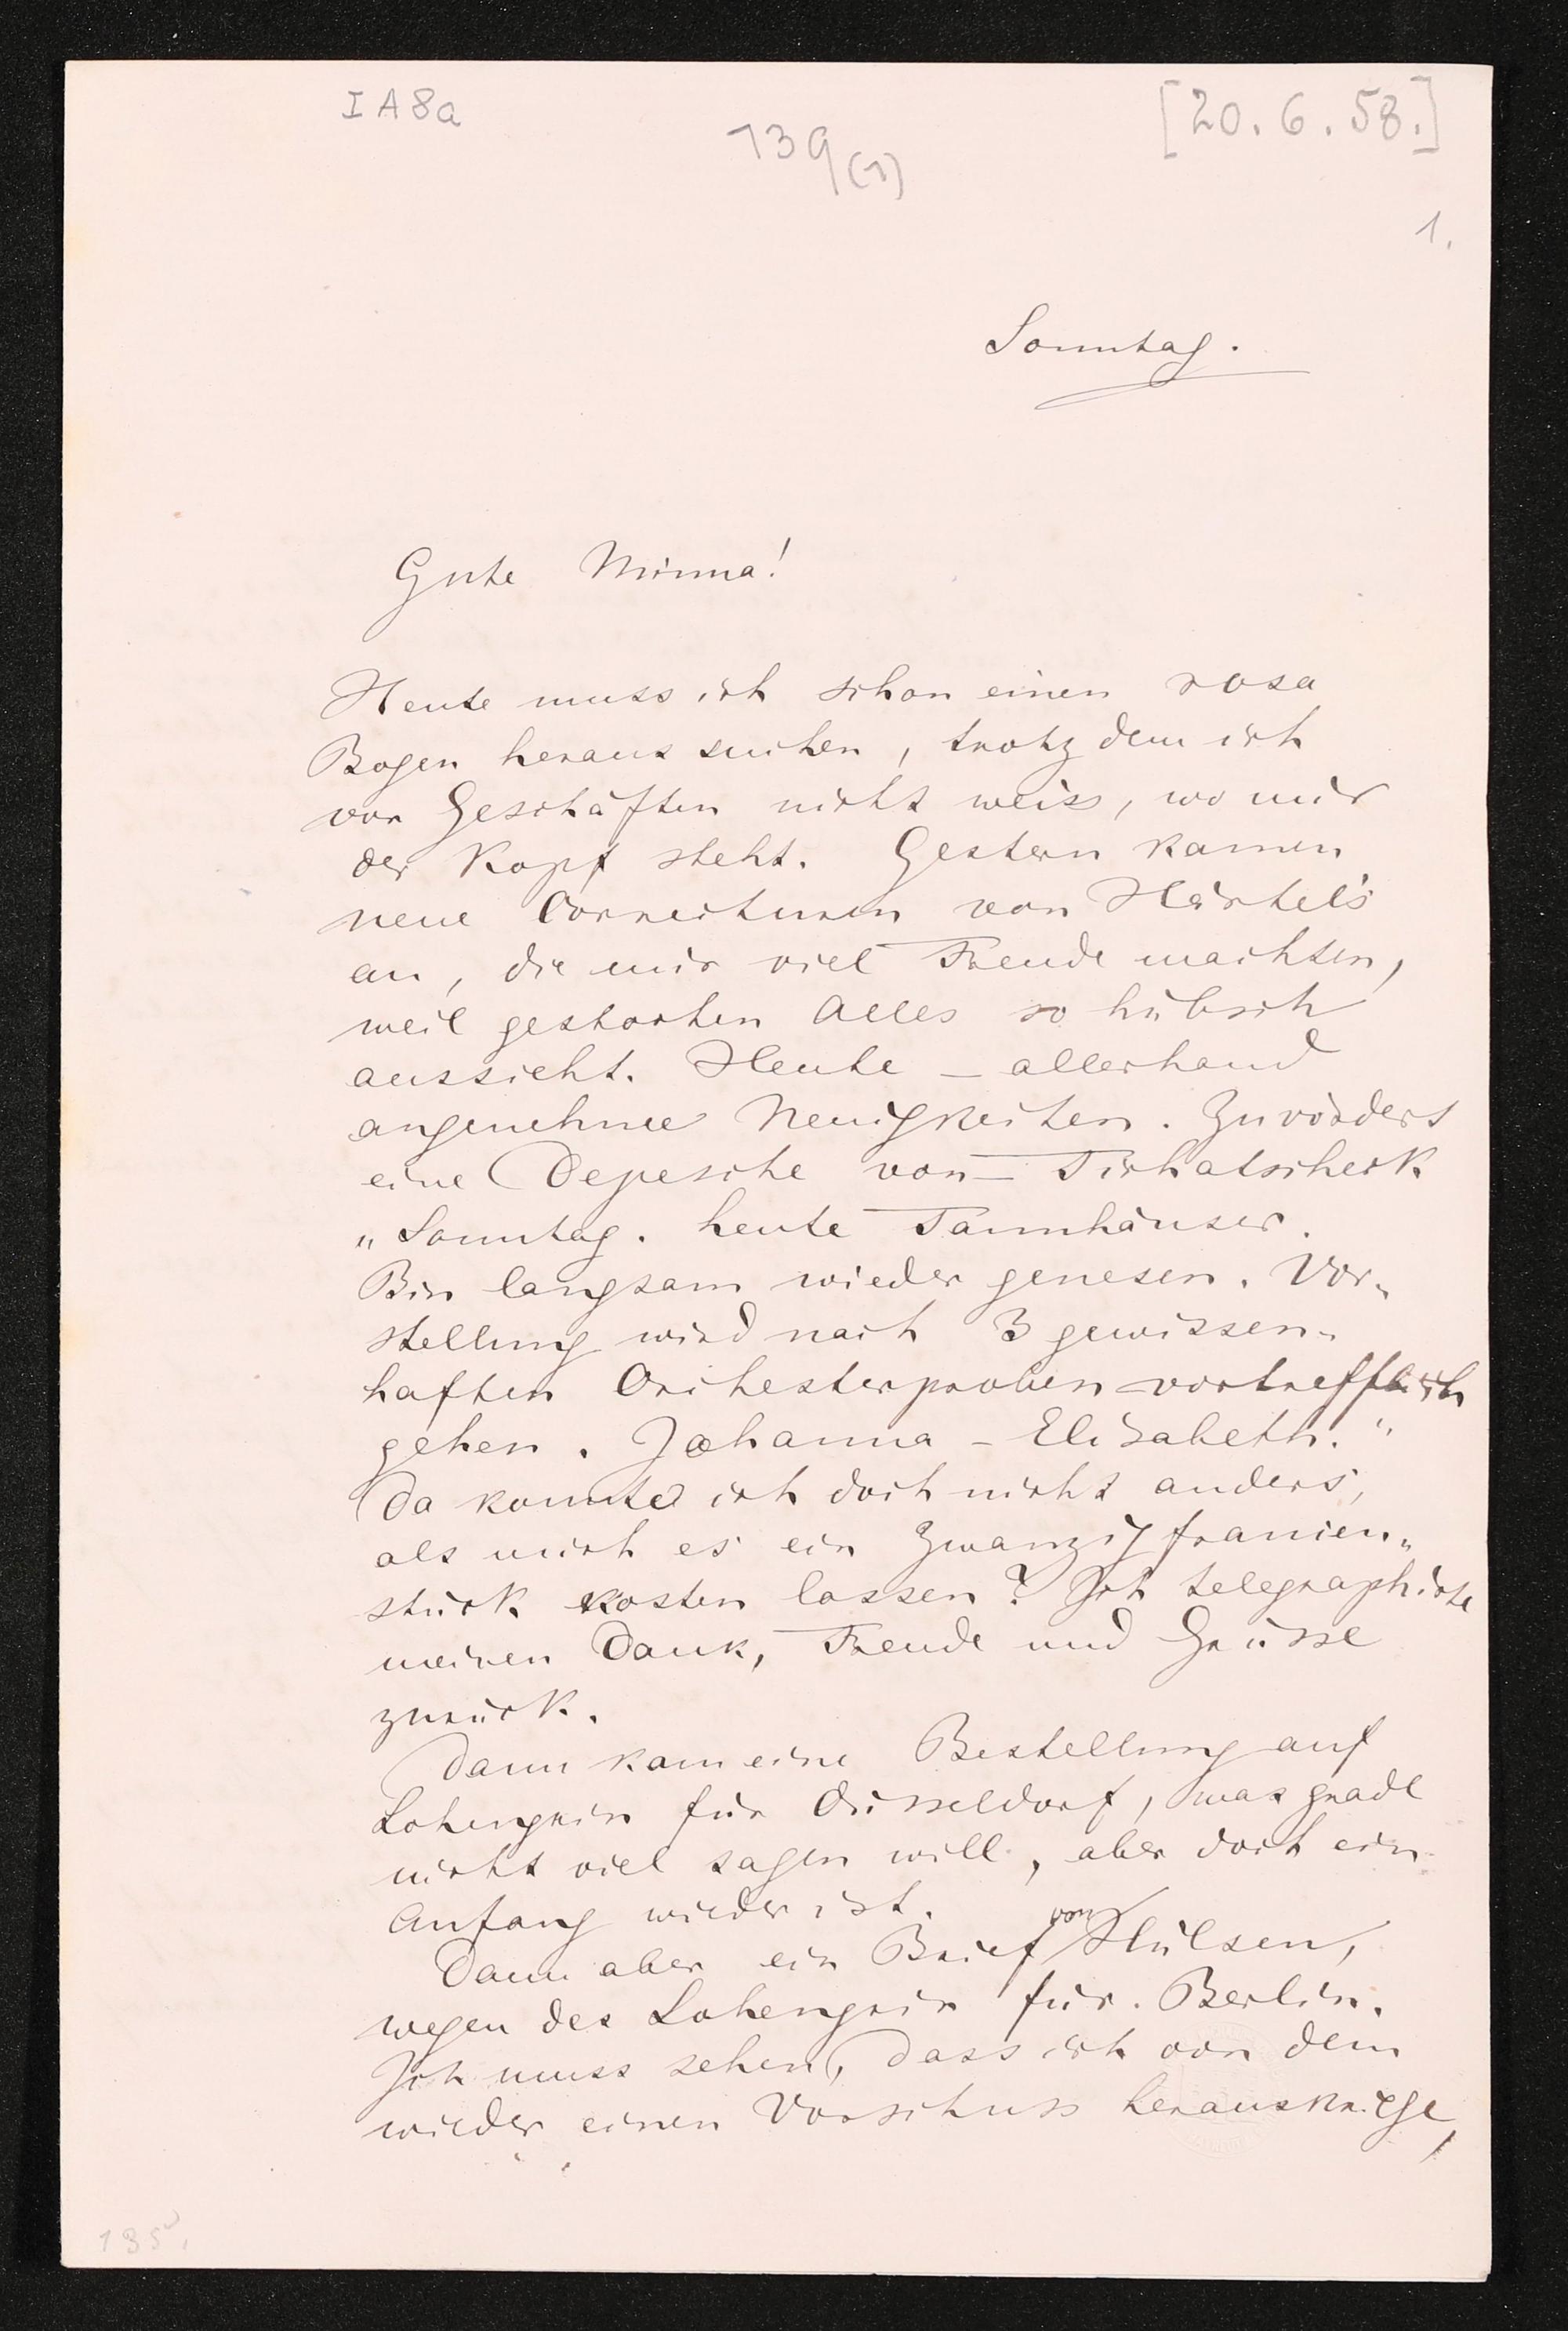 I A 8 a
139(1)
[20. 6. 58.]
1.
Sonntag.
Gute Minna!
Heute muss ich schon einen rosa
Bogen heraus suchen, trotzdem ich
vor Geschäften nicht weiss, wo mir
der Kopf steht. Gestern kamen
neue Correcturen von Härtel's
an, die mir viel Freude machten,
weil gestochen Alles so hübsch
aussieht. Heute — allerhand
angenehme Neuigkeiten. Zuvörderst
eine Depesche von — Tichatscheck
„Sonntag. heute Tannhäuser.
Bin langsam wieder genesen. Vor-
stellung wird nach 3 gewissen-
haften Orchesterproben vortrefflich
gehen. Johanna - Elisabeth."
Da konnte ich doch nicht anders,
als mich es ein Zwanzigfrancen-
stück kosten lassen? Ich telegraphirte
meinen Dank, Freude und Grüsse
zurück.
Dann kam eine Bestellung auf
Lohengrin für Düsseldorf, was grade
nicht viel sagen will, aber doch ein
Anfang wieder ist.
Dann aber ein Brief von Hülsen,
wegen des Lohengrin für Berlin.
Ich muss sehen, dass ich von dem
wieder einen Vorschuss herauskriege,
135.